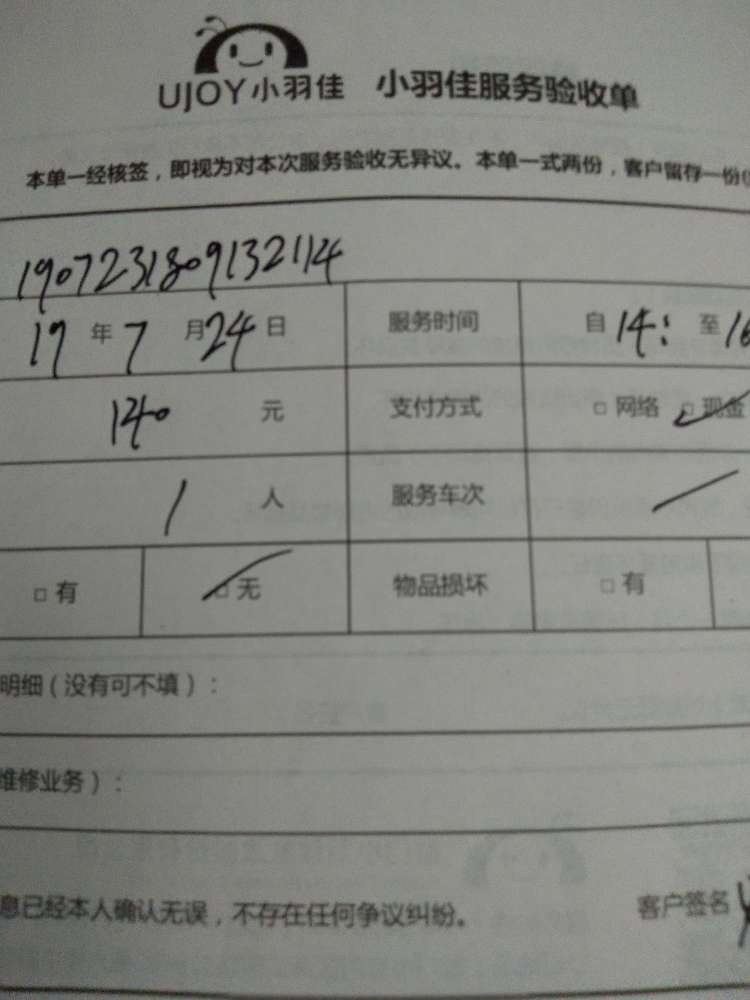 UJOY小羽佳 小羽佳服务验收单
本单一经核签，即视为对本次服务验收无异议。本单一式两份，客户留存一份
1907231809132114
19 年 7 月 24 日 服务时间 自 14: 至 16
140 元 支付方式 □ 网络 □ 现金
1 人 服务车次
□ 有 □ 无 物品损坏 □ 有
明细（没有可不填）：
维修业务）：
息已经本人确认无误，不存在任何争议纠纷。 客户签名